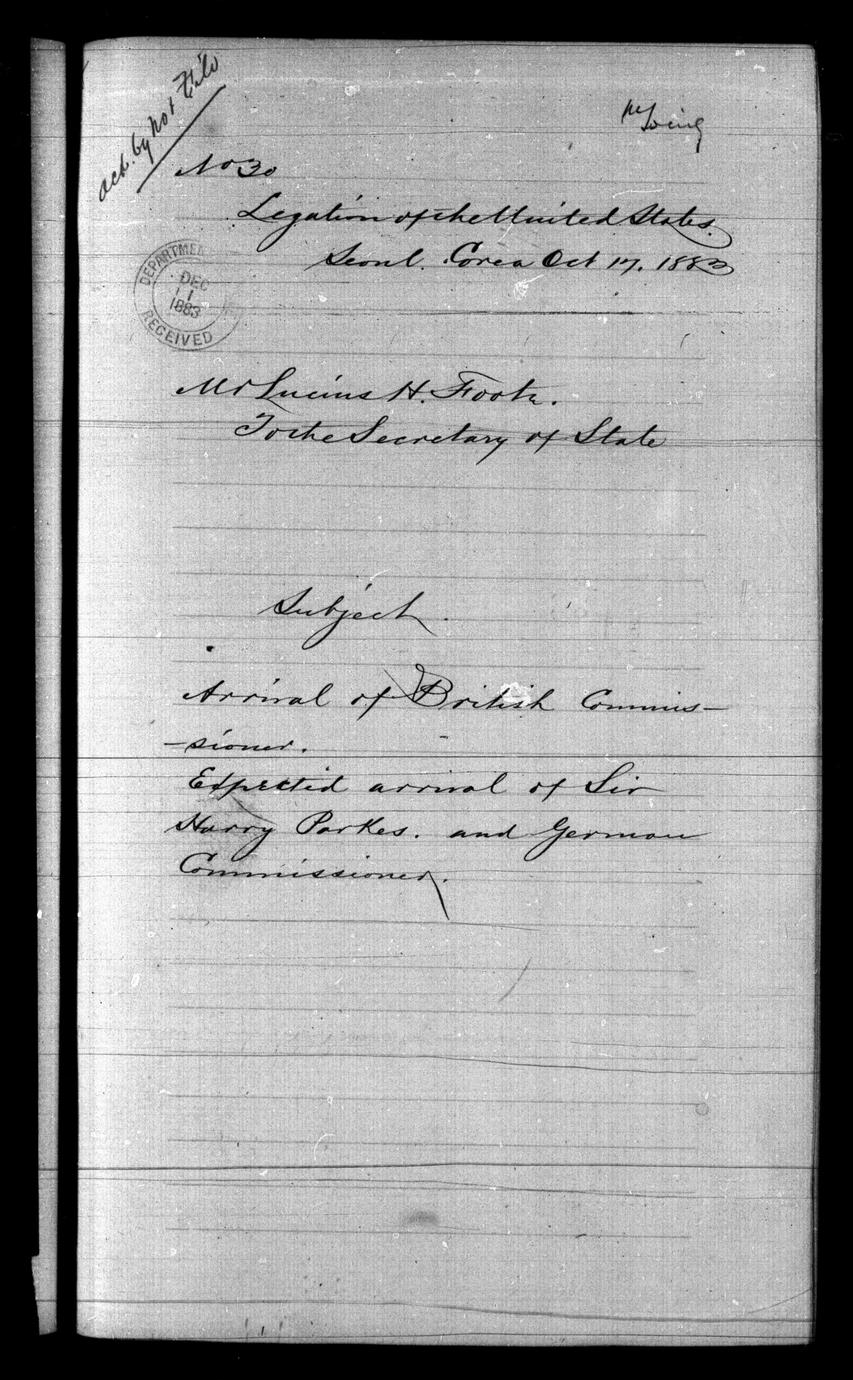 ack. by not File
No 30
Legation of the United States.
Seoul. Corea Oct 17. 1883
DEPARTMEN
DEC
11
1883
RECEIVED
Mr Lucius H. Foote.
To the Secretary of State
Subject.
Arrival of British Commis-
-sioner.
Expected arrival of Sir
Harry Parkes. and German
Commissioner.